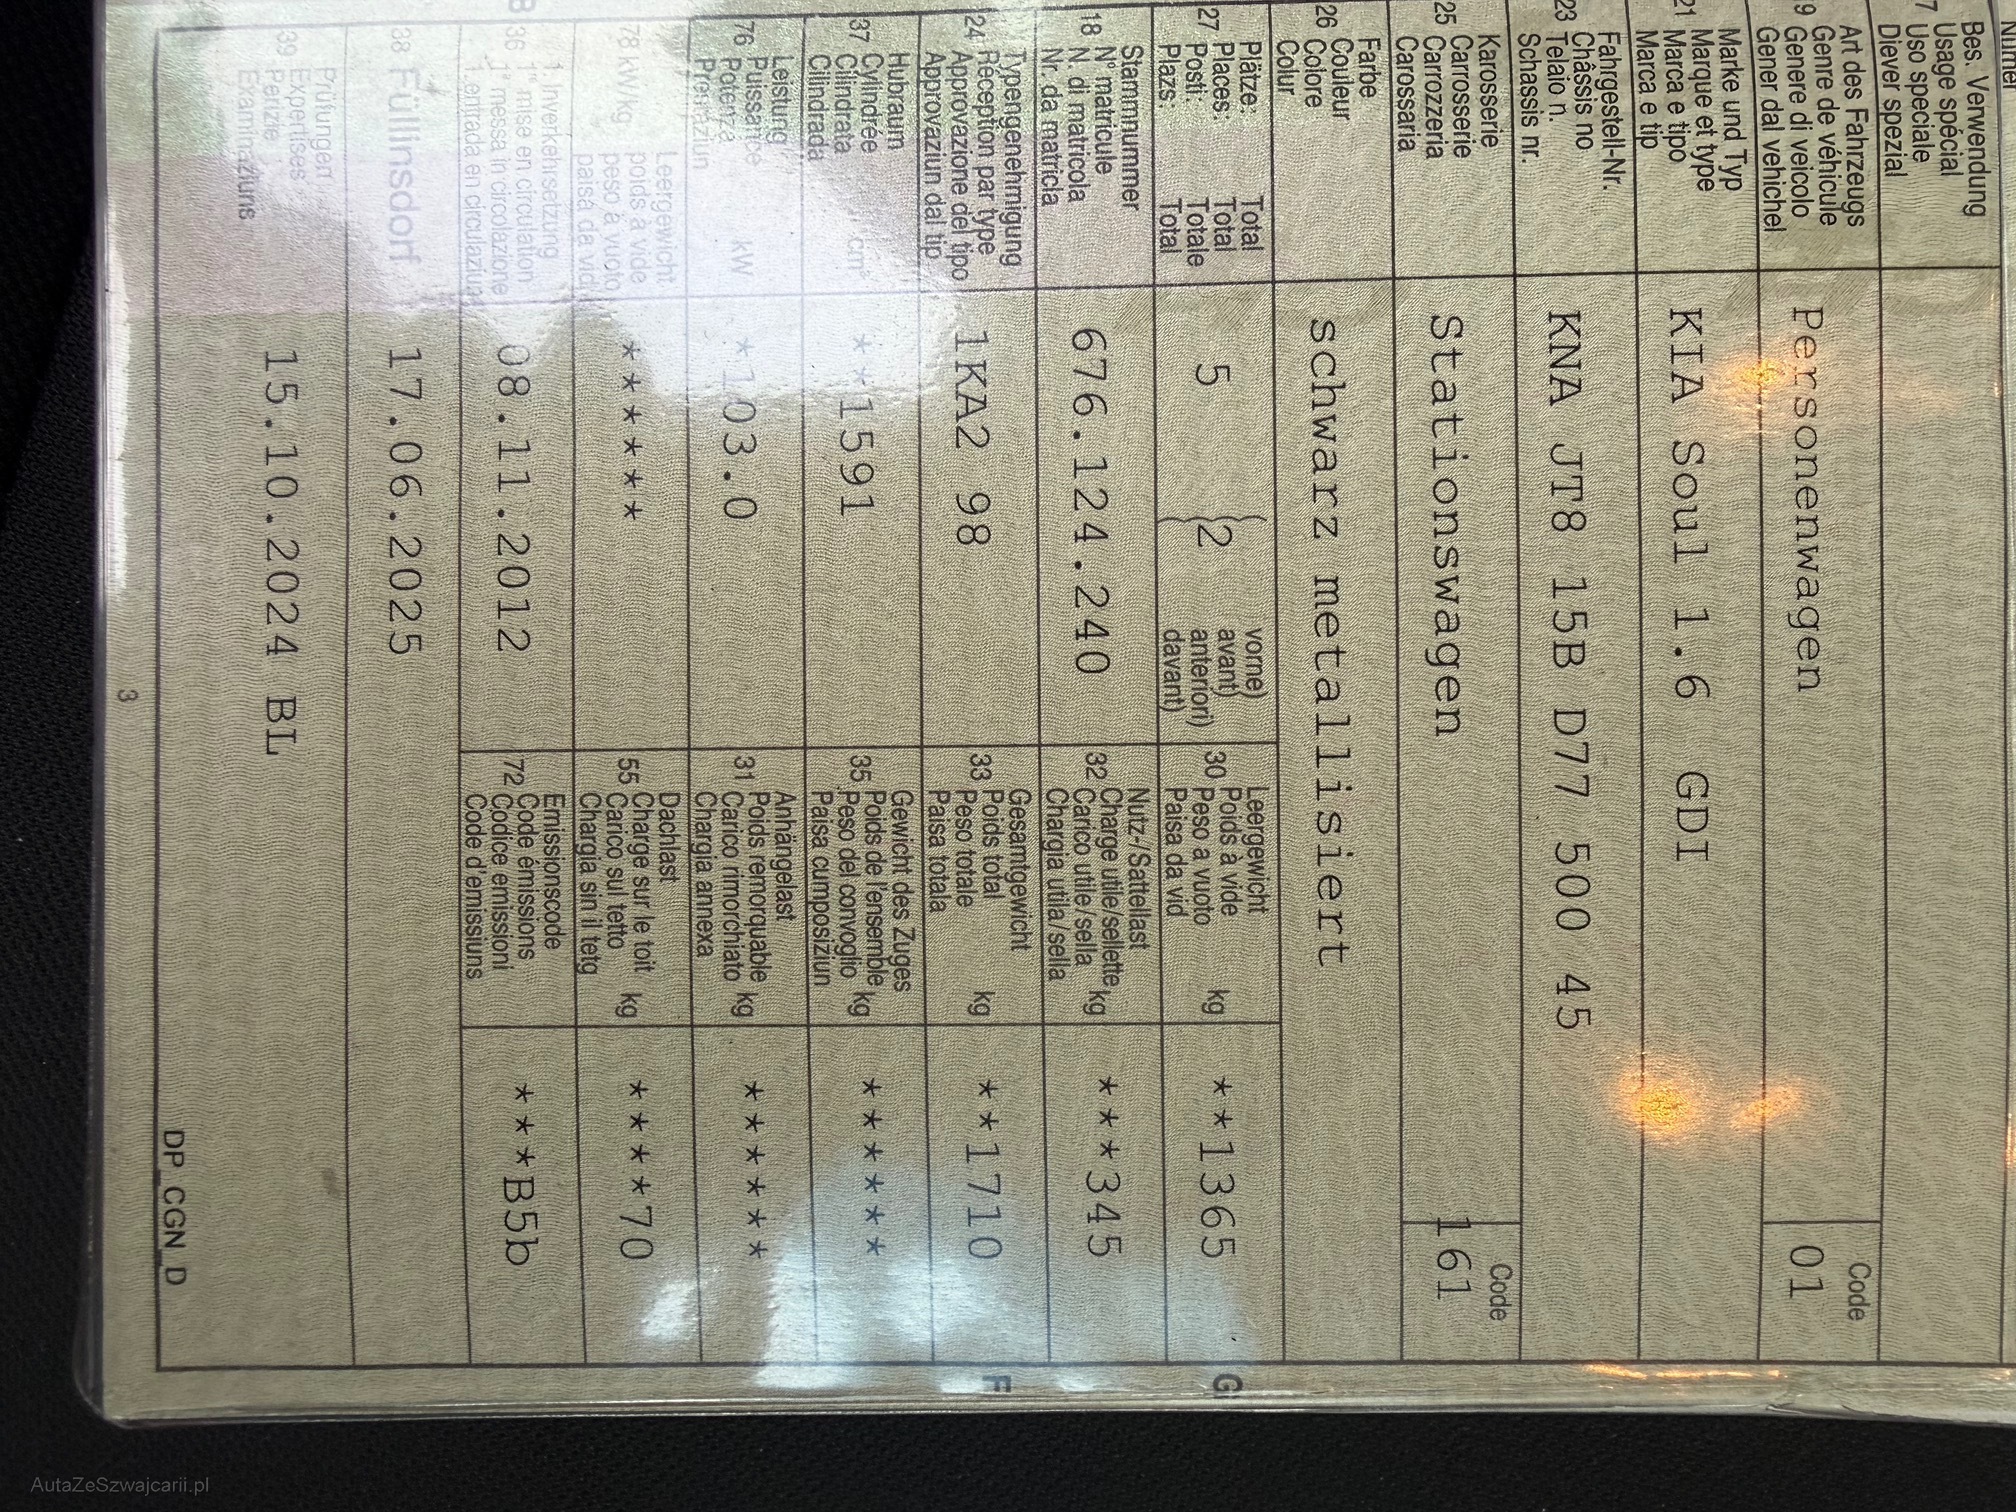 Bes. Verwendung
Usage spécial
7 Uso speciale
Diever spezial
Art des Fahrzeugs
Genre de véhicule
9 Genere di veicolo
Gener dal vehichel
Personenwagen
Code
01
Marke und Typ
Marque et type
21 Marca e tipo
Marca e tip
KIA Soul 1.6 GDI
Fahrgestell-Nr.
Châssis no
23 Telaio n.
Schassis nr.
KNA JT8 15B D77 500 45
Karosserie
Carrosserie
25 Carrozzeria
Carossaria
Stationswagen
Code
161
Farbe
Couleur
26 Colore
Colur
schwarz metallisiert
Plätze: Total
27 Places: Total
Posti: Totale
Plazs: Total
5 (2
vorne)
avant)
anteriori)
davant)
Leergewicht
30 Poids à vide
Peso a vuoto kg
Paisa da vid
**1365
Stammnummer
18 N° matricule
N. di matricola
Nr. da matricla
676.124.240
Nutz-/Sattellast
32 Charge utile/sellette kg
Carico utile/sella
Chargia utila/sella
***345
Typengenehmigung
24 Réception par type
Approvazione del tipo
Approvaziun dal tip
1KA2 98
Gesamtgewicht
33 Poids total kg
Peso totale
Paisa totala
**1710
Hubraum
37 Cylindrée
Cilindrata cm³
Cilindrada
**1591
Gewicht des Zuges
35 Poids de l'ensemble kg
Peso del convoglio
Paisa cumposiziun
******
Leistung
76 Puissance
Potenza kW
Prestaziun
*103.0
Anhängelast
31 Poids remorquable kg
Carico rimorchiato
Chargia annexa
******
Leergewicht
78 kW/kg poids à vide
peso a vuoto
paisa da vid
******
Dachlast
55 Charge sur le toit kg
Carico sul tetto
Chargia sin il tetg
****70
1. Inverkehrsetzung
36 1re mise en circulation
1a messa in circolazione
1. entrada en circulaziun
08.11.2012
Emissionscode
72 Code émissions
Codice emissioni
Code d'emissiuns
***B5b
38 Füllinsdorf 17.06.2025
Prüfungen
39 Expertises
Perizie
Examinaziuns
15.10.2024 BL
DP_CGN_D
3
F
G
AutaZeSzwajcarii.pl